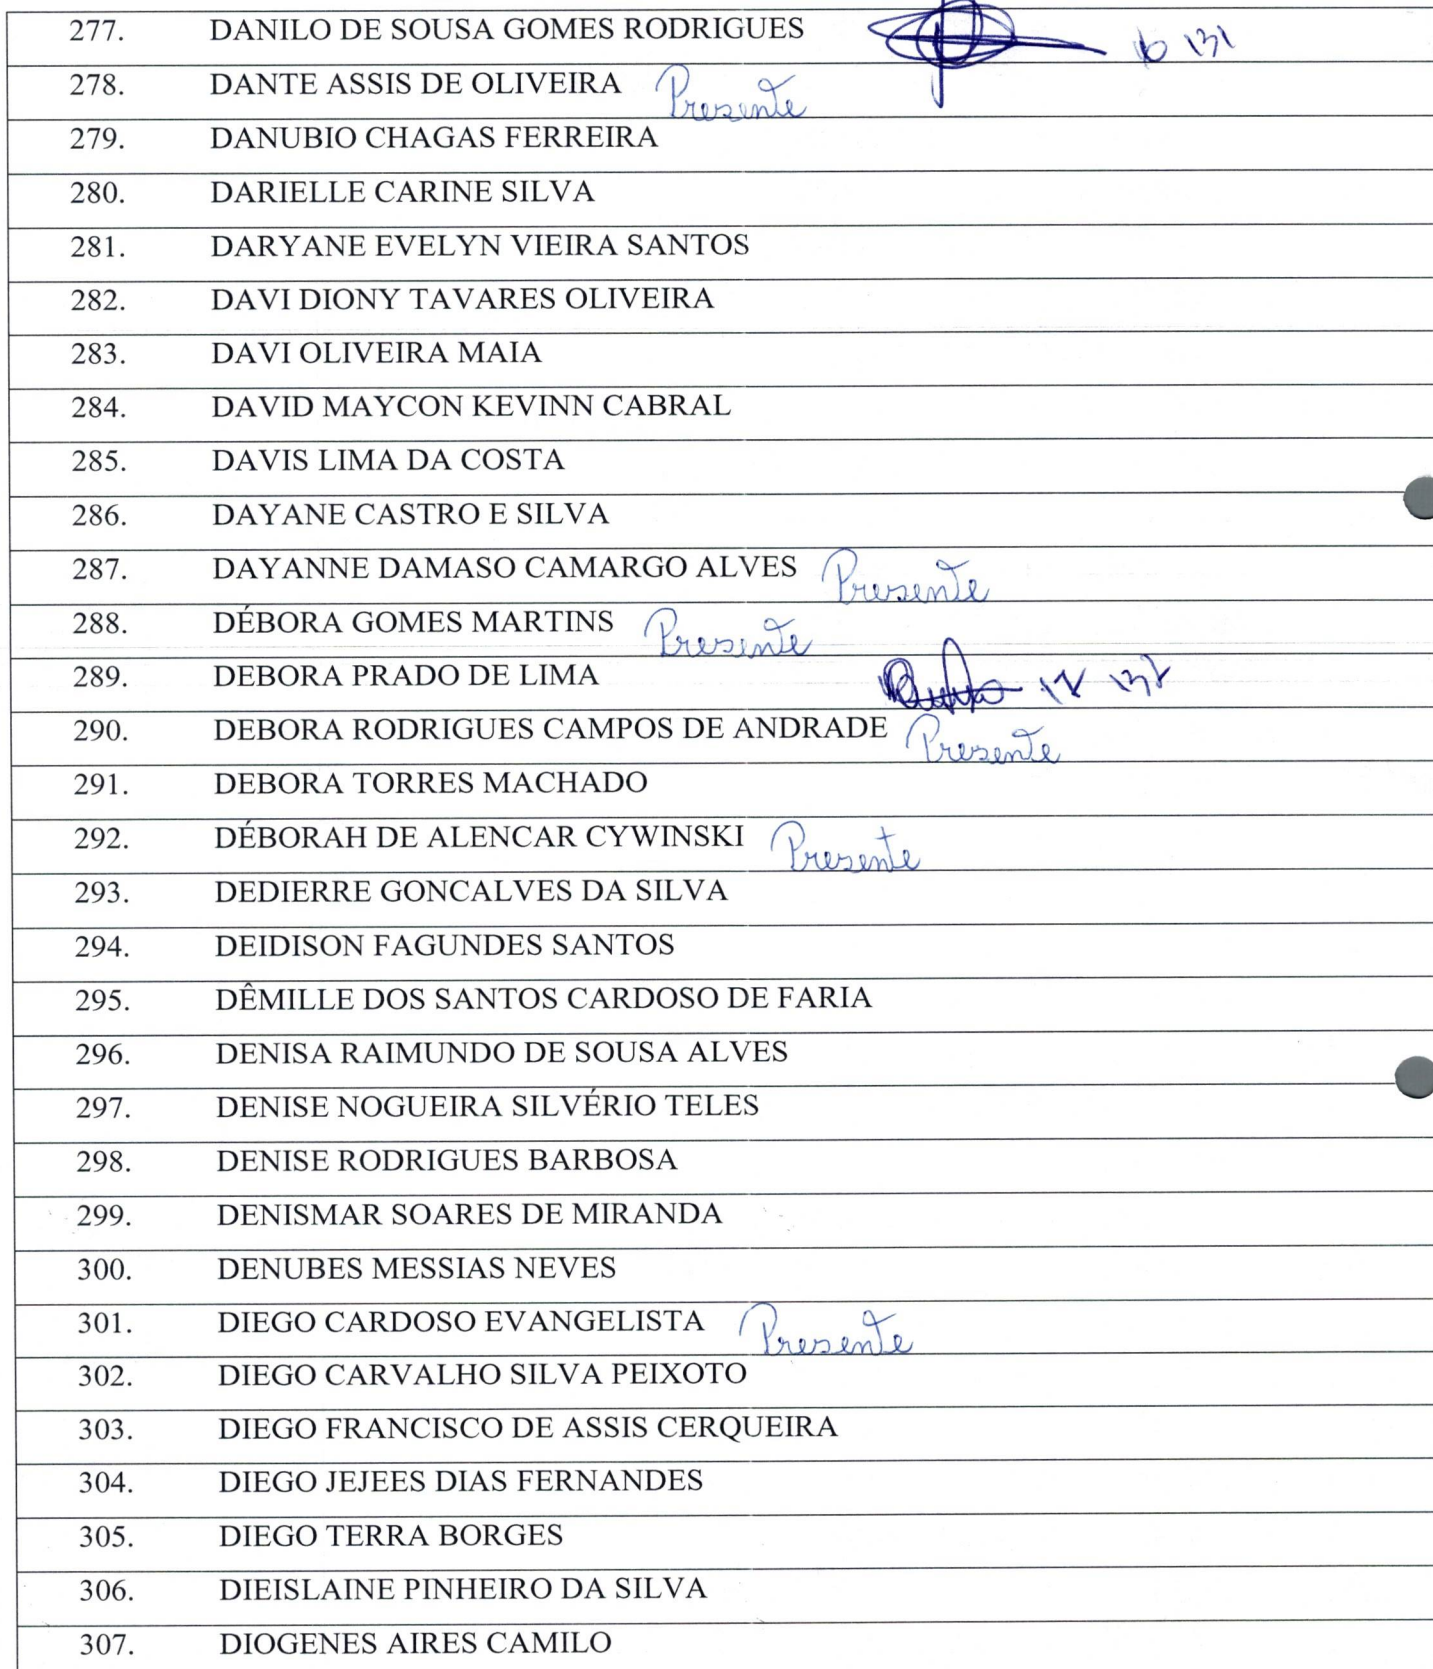 277. DANILO DE SOUSA GOMES RODRIGUES 16 131
278. DANTE ASSIS DE OLIVEIRA Presente
279. DANUBIO CHAGAS FERREIRA
280. DARIELLE CARINE SILVA
281. DARYANE EVELYN VIEIRA SANTOS
282. DAVI DIONY TAVARES OLIVEIRA
283. DAVI OLIVEIRA MAIA
284. DAVID MAYCON KEVINN CABRAL
285. DAVIS LIMA DA COSTA
286. DAYANE CASTRO E SILVA
287. DAYANNE DAMASO CAMARGO ALVES Presente
288. DÉBORA GOMES MARTINS Presente
289. DEBORA PRADO DE LIMA
290. DEBORA RODRIGUES CAMPOS DE ANDRADE Presente
291. DEBORA TORRES MACHADO
292. DÉBORAH DE ALENCAR CYWINSKI Presente
293. DEDIERRE GONCALVES DA SILVA
294. DEIDISON FAGUNDES SANTOS
295. DÊMILLE DOS SANTOS CARDOSO DE FARIA
296. DENISA RAIMUNDO DE SOUSA ALVES
297. DENISE NOGUEIRA SILVÉRIO TELES
298. DENISE RODRIGUES BARBOSA
299. DENISMAR SOARES DE MIRANDA
300. DENUBES MESSIAS NEVES
301. DIEGO CARDOSO EVANGELISTA Presente
302. DIEGO CARVALHO SILVA PEIXOTO
303. DIEGO FRANCISCO DE ASSIS CERQUEIRA
304. DIEGO JEJEES DIAS FERNANDES
305. DIEGO TERRA BORGES
306. DIEISLAINE PINHEIRO DA SILVA
307. DIOGENES AIRES CAMILO